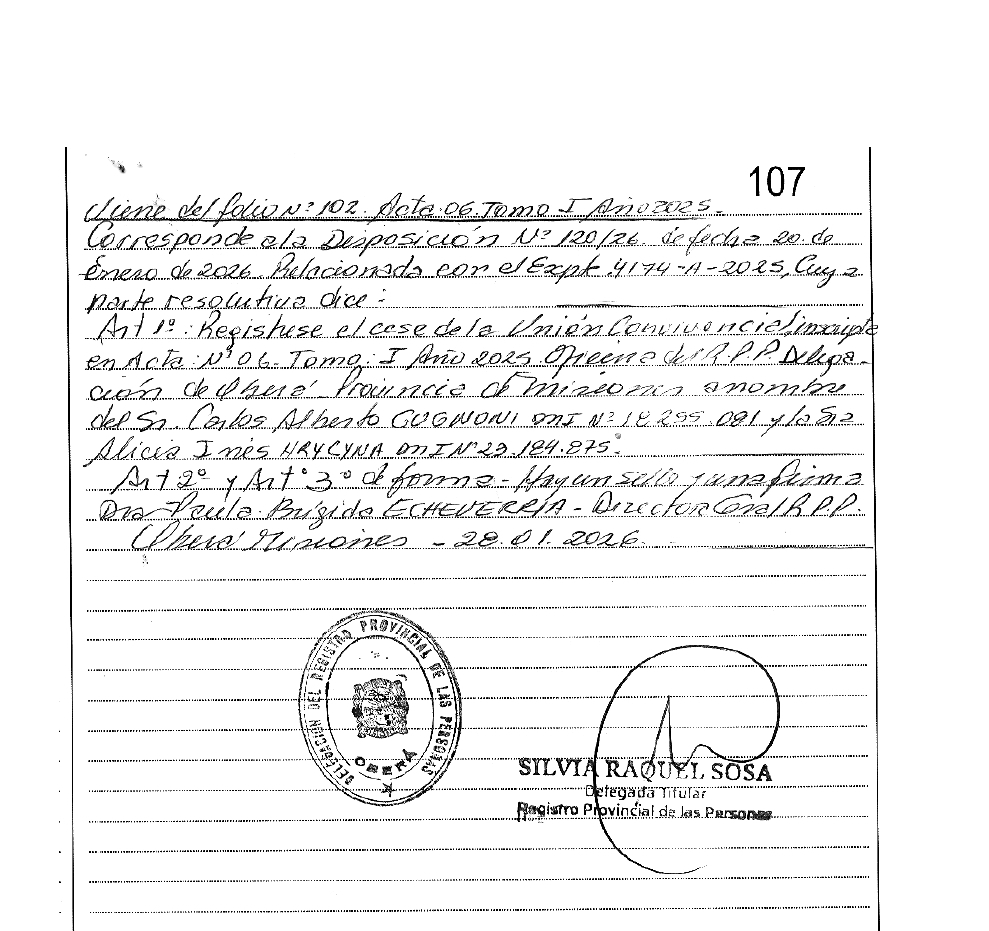 107
Viene del folio Nº 102. Acta 06. Tomo I Año 2025.-
Corresponde a la Disposición Nº 120/26. de fecha 20 de
Enero de 2026. Relacionada con el Expte 4174-A-2025, Cuya
parte resolutiva dice:-
Art 1º: Registrese el cese de la Unión Convivencial inscripta
en Acta: Nº 06. Tomo: I Año 2025. Oficina del R.P.P. Delega-
ción de Oberá Provincia de Misiones a nombre
del Sr. Carlos Alberto GUGNONI DNI Nº 18.295.091 y la Sra
Alicia Inés HRYCYNA DNI Nº 23.184.875.
Art 2º y Art º 3º de forma - Hay un sello y una firma
Dra Paula Brigida ECHEVERRIA - Directora Gral R.P.P.
Oberá Misiones - 28.01.2026.
DELEGACIÓN DEL REGISTRO PROVINCIAL DE LAS PERSONAS
OBERÁ
SILVIA RAQUEL SOSA
Delegada Titular
Registro Provincial de las Personas